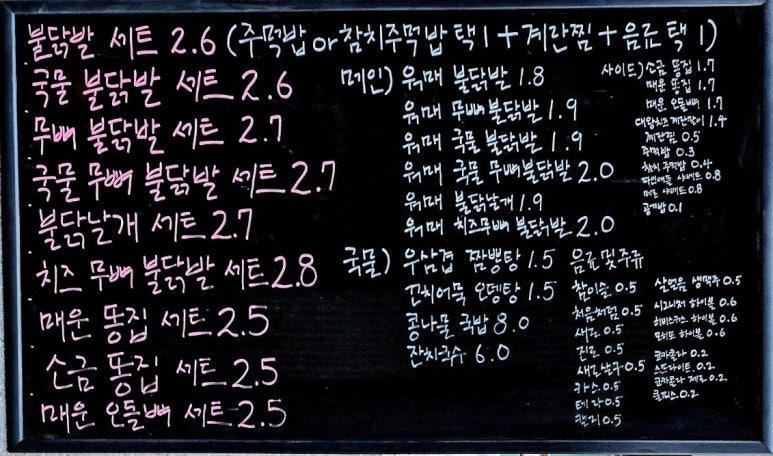 불닭발 세트 2.6 (주먹밥 or 참치주먹밥 택1 + 계란찜 + 음료 택1)
국물 불닭발 세트 2.6
무뼈 불닭발 세트 2.7
국물 무뼈 불닭발 세트 2.7
불닭날개 세트 2.7
치즈 무뼈 불닭발 세트 2.8
매운 똥집 세트 2.5
소금 똥집 세트 2.5
매운 오돌뼈 세트 2.5
메인) 워매 불닭발 1.8
워매 무뼈 불닭발 1.9
워매 국물 불닭발 1.9
워매 국물 무뼈불닭발 2.0
워매 불닭날개 1.9
워매 치즈무뼈 불닭발 2.0
국물) 우삼겹 짬뽕탕 1.5
꼬치어묵 오뎅탕 1.5
콩나물 국밥 8.0
잔치국수 6.0
사이드) 소금 똥집 1.7
매운 똥집 1.7
매운 오돌뼈 1.7
대왕치즈 계란말이 1.4
계란찜 0.5
주먹밥 0.3
참치 주먹밥 0.4
파인애플 샤베트 0.8
메로 샤베트 0.8
공기밥 0.1
음료 및 주류
참이슬 0.5
처음처럼 0.5
새로 0.5
진로 0.5
새로살구 0.5
카스 0.5
테라 0.5
켈리 0.5
살얼음 생맥주 0.5
시그니처 하이볼 0.6
히비스커스 하이볼 0.6
모히또 하이볼 0.6
코카콜라 0.2
스프라이트 0.2
코카콜라 제로 0.2
쿨피스 0.2